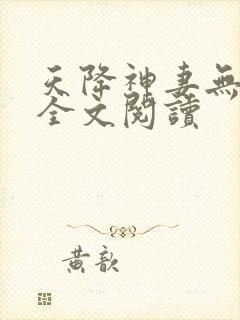 天降神妻無
全文閱讀
黄歆